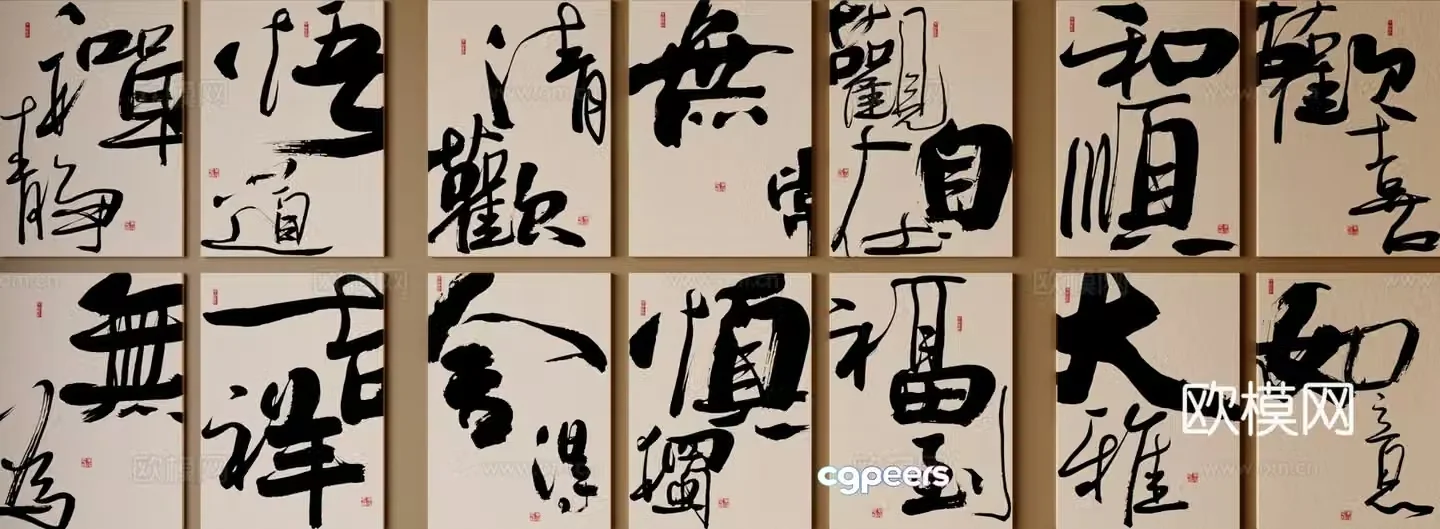 禪静
悟道
清歡
無常
觀自在
和順
歡喜
無為
吉祥
舍得
慎獨
福到
大雅
如意
欧模网
cgpeers